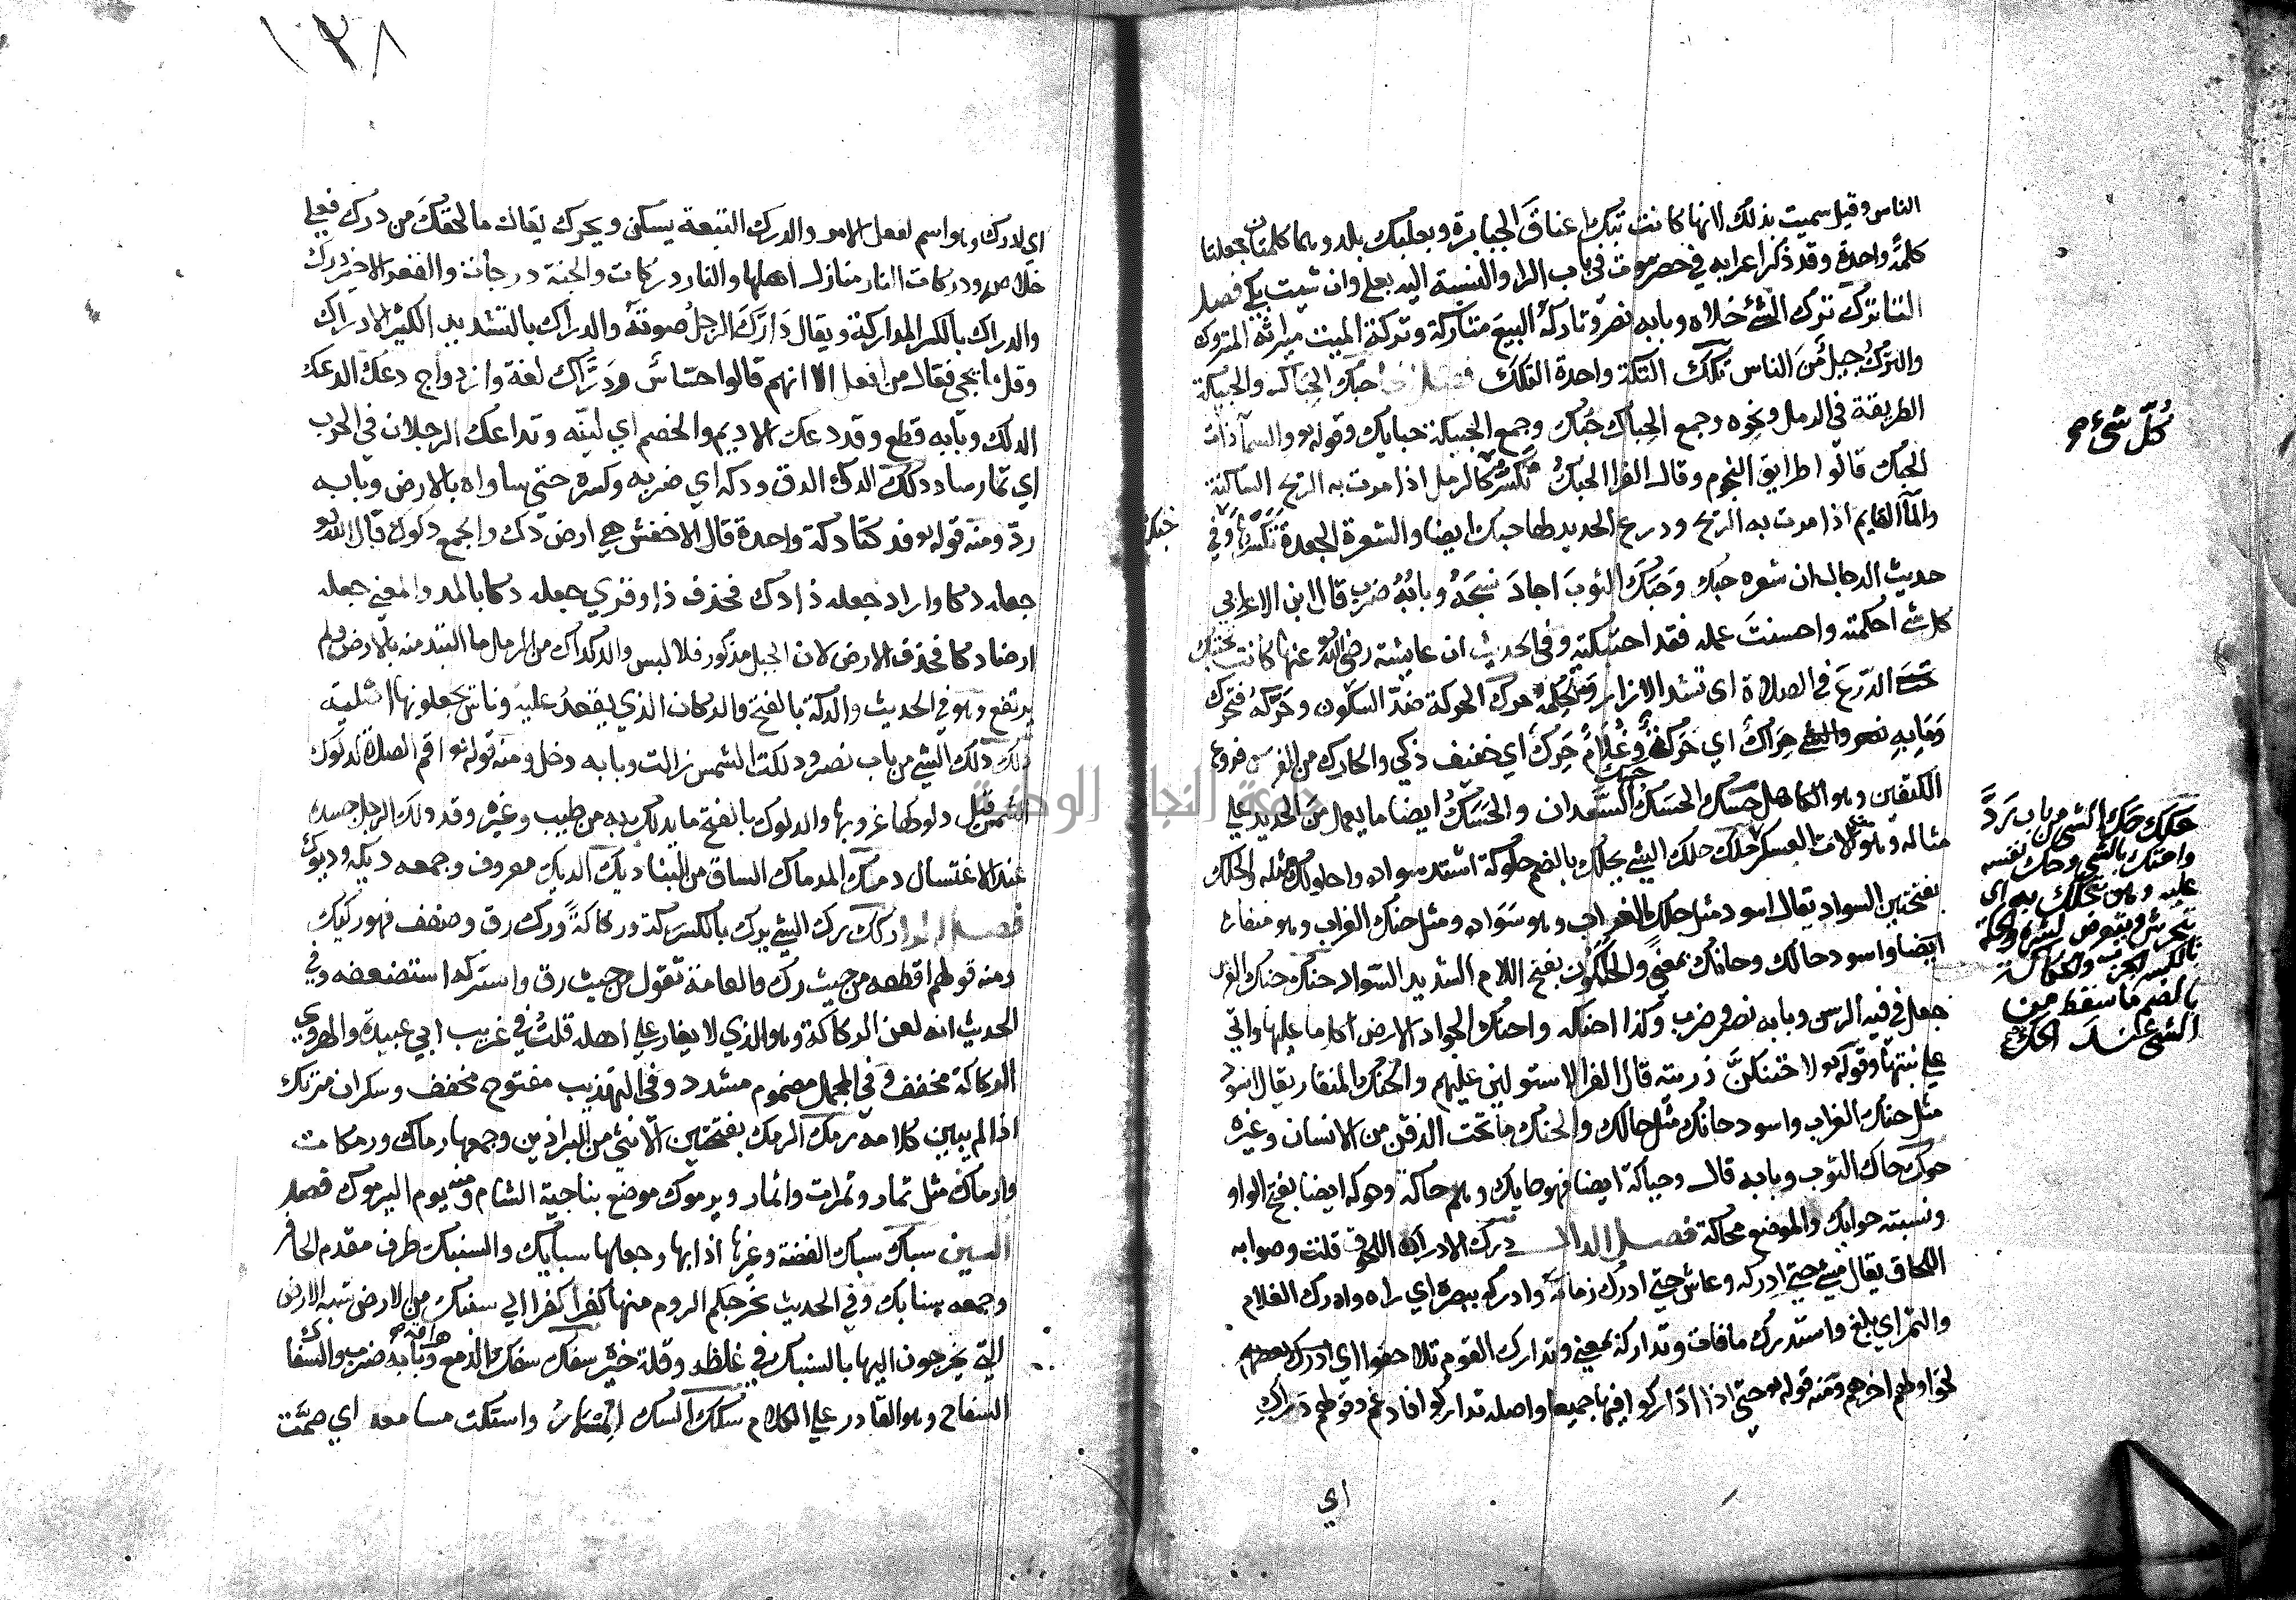 الناس وقيل سميت بذلك لانها كانت تبك اعناق الجبابرة وبعلبك بلد وهما كلمتان جعلتا
كلمة واحدة وقد ذكر اعرابه في حضرموت في باب الرا والنسبة اليه بعلي وان شيت بكي فصل
التا ترك ترك الشئ خلاه وبابه نصر وتاركه البيع متاركة وتركة الميت ميراثه المتروك
والترك جيل من الناس تكك التكة واحدة التكك فصل الحا حبك الحباك والحبيكة
الطريقة في الرمل ونحوه وجمع الحباك حبك وجمع الحبيكة حبايك وقوله تع والسما ذات
الحبك قالوا طرايق النجوم وقال الفرا الحبك تكسر كل شئ كالرمل اذا مرت به الريح الساكنة
والمآ القايم اذا مرت به الريح ودرع الحديد لها حبك ايضا والشعرة الجعدة تكسرها وفي
حديث الدجال ان شعره حبك وحبك الثوب اجاد نسجه وبابه ضرب قال ابن الاعرابي
كل شئ احكمته واحسنت عمله فقد احتبكته وفي الحديث ان عايشة رضي الله عنها كانت تحتبك
تحت الدرع في الصلاة اي تشد الازار وتحكمه حرك الحركة ضد السكون وحركه فتحرك
وما به حراك اي حركة وغلام حرك اي خفيف ذكي والحارك من الفرس فروع
الكتفين وهو الكاهل حسك الحسك حسك السعدان والحسك ايضا ما يعمل من الحديد علي
مثاله وهو من الات العسكر حلك حلك الشئ يحلك بالضم حلوكة اشتد سواده واحلولك مثله والحلك
بفتحتين السواد يقال اسود مثل حلك الغراب وهو سواده ومثل حنك الغراب وهو منقاره
ايضا واسود حالك وحانك بمعني والحلكوك بفتح اللام الشديد السواد حنك حنك الفرس
جعل في فيه الرسن وبابه نصر وضرب وكذا احتنكه واحتنك الجراد الارض اكل ما عليها واتي
علي نبتها وقوله تع لاحتنكن ذريته قال الفرا لاستولين عليهم والحنك المنقار يقال اسود
مثل حنك الغراب واسود حانك مثل حالك والحنك ما تحت الذقن من الانسان وغيره
حوك حاك الثوب وبابه قال وحياكة ايضا فهو حايك وهم حاكة وحوكة ايضا بفتح الواو
ونسبته حوايك والموضع محاكة فصل الدال درك الادراك اللحوق قلت وصوابه
اللحاق يقال مشي حتي ادركه وعاش حتي ادرك زمانه وادركه ببصره اي راه وادرك الغلام
والثمر اي بلغ واستدرك ما فات وتداركه بمعني وتدارك القوم تلاحقوا اي ادرك بعضهم
اولهم اخرهم ومنه قوله تع حتي اذا اداركوا فيها جميعا واصله تداركوا فادغم وقولهم دراك
اي
كلّ شئ صح
حكك حك الشئ من باب ردَّ
واحتك بالشئ وحك نفسه
عليه وهو يتحكك به اي
يتحرش ويتعرض لشره والحكة
بالكسر الجرب والحكاكة
بالضم ما سقط من
الشئ عند الحك
١٣٨
اي ادرك وهو اسم لفعل الامر والدرك التبعة يسكن ويحرك يقال ما لحقك من درك فعلي
خلاصه ودركات النار منازل اهلها والنار دركات والجنة درجات والقعر الاخير درك
والدراك بالكسر المداركة ويقال دارك الرجل صوته والدراك بالتشديد الكثير الادراك
وقل ما يجي فعال من افعل الا انهم قالوا حساس ودراك لغة وازدواج دعك الدعك
الدلك وبابه قطع وقد دعك الاديم والخصم اي لينه وتداعك الرجلان في الحرب
اي تمارسا دكك الدك الدق ودكه اي ضربه وكسره حتي ساواه بالارض وبابه
ردّ ومنه قوله تع فدكتا دكة واحدة قال الاخفش هي ارض دك والجمع دكوك قال الله تع
جعله دكا واراد جعله ذا دك فحذف ذا وقري جعله دكا بالمد والمعني جعله
ارضا دكا فحذف الارض لان الجبل مذكور فلا لبس والدكداك من الرمل ما التبد منه بالارض ولم
يرتفع وهو في الحديث والدكة بالفتح والدكان الذي يقعد عليه وناس يجعلونها اصلية
دلك دلك الشئ من باب نصر ودلكت الشمس زالت وبابه دخل ومنه قوله تع اقم الصلاة لدلوك
الشمس قيل دلوكها غروبها والدلوك بالفتح ما يدلك به من طيب وغيره وقد دلك الرجل جسده
عند الاغتسال دمك المدماك الساق من البنا ديك الديك معروف وجمعه ديكة وديوك
فصل الرا ركك رك الشئ يرك بالكسر ركة وركاكة ورك رق وضعف فهو ركيك
ومنه قولهم اقطعه من حيث رك والعامة تقول من حيث رق واستركه استضعفه وفي
الحديث انه لعن الركاكة وهو الذي لا يغار علي اهله قلت في غريب ابي عبيدة والهروي
الركاكة مخفف وفي المجمل مضموم مشدد وفي التهذيب مفتوح مخفف وسكران مرتك
اذا لم يبين كلامه رمك الرمك بفتحتين الانثي من البراذين وجمعها رماك ورمكات
وارماك مثل ثمار وثمرات واثمار ويرموك موضع بناحية الشام ومنه يوم اليرموك فصل
السين سبك سبك الفضة وغيرها اذابها وجعلها سبايك والسنبك طرف مقدم الحافر
وجمعه سنابك وفي الحديث تخرجكم الروم منها كفرا كفرا الي سنبك من الارض شبه الارض
التي يخرجون اليها بالسنبك في غلظه وقلة خيره سفك سفك الدمع هراقه وبابه ضرب والسفاك
السفاح وهو القادر علي الكلام سكك السك المسمار واستكت مسامعه اي صمت